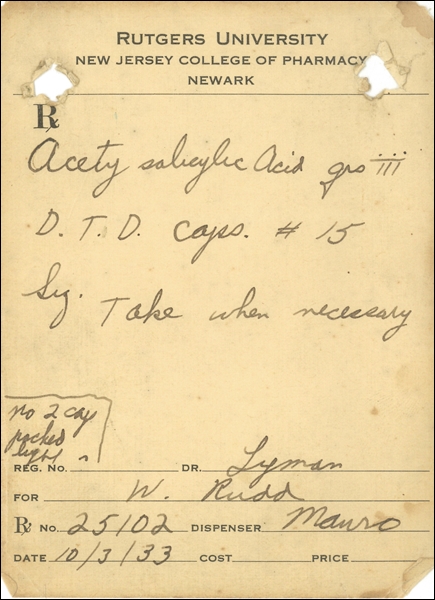 RUTGERS UNIVERSITY
NEW JERSEY COLLEGE OF PHARMACY
NEWARK
℞
Acety salicylic Acid grs iii
D. T. D. Caps. # 15
Sig. Take when necessary
no 2 cap
packed
REG. No. DR. Lyman
FOR W. Rudd
℞ No. 25102 DISPENSER Mauro
DATE 10/3/33 COST PRICE